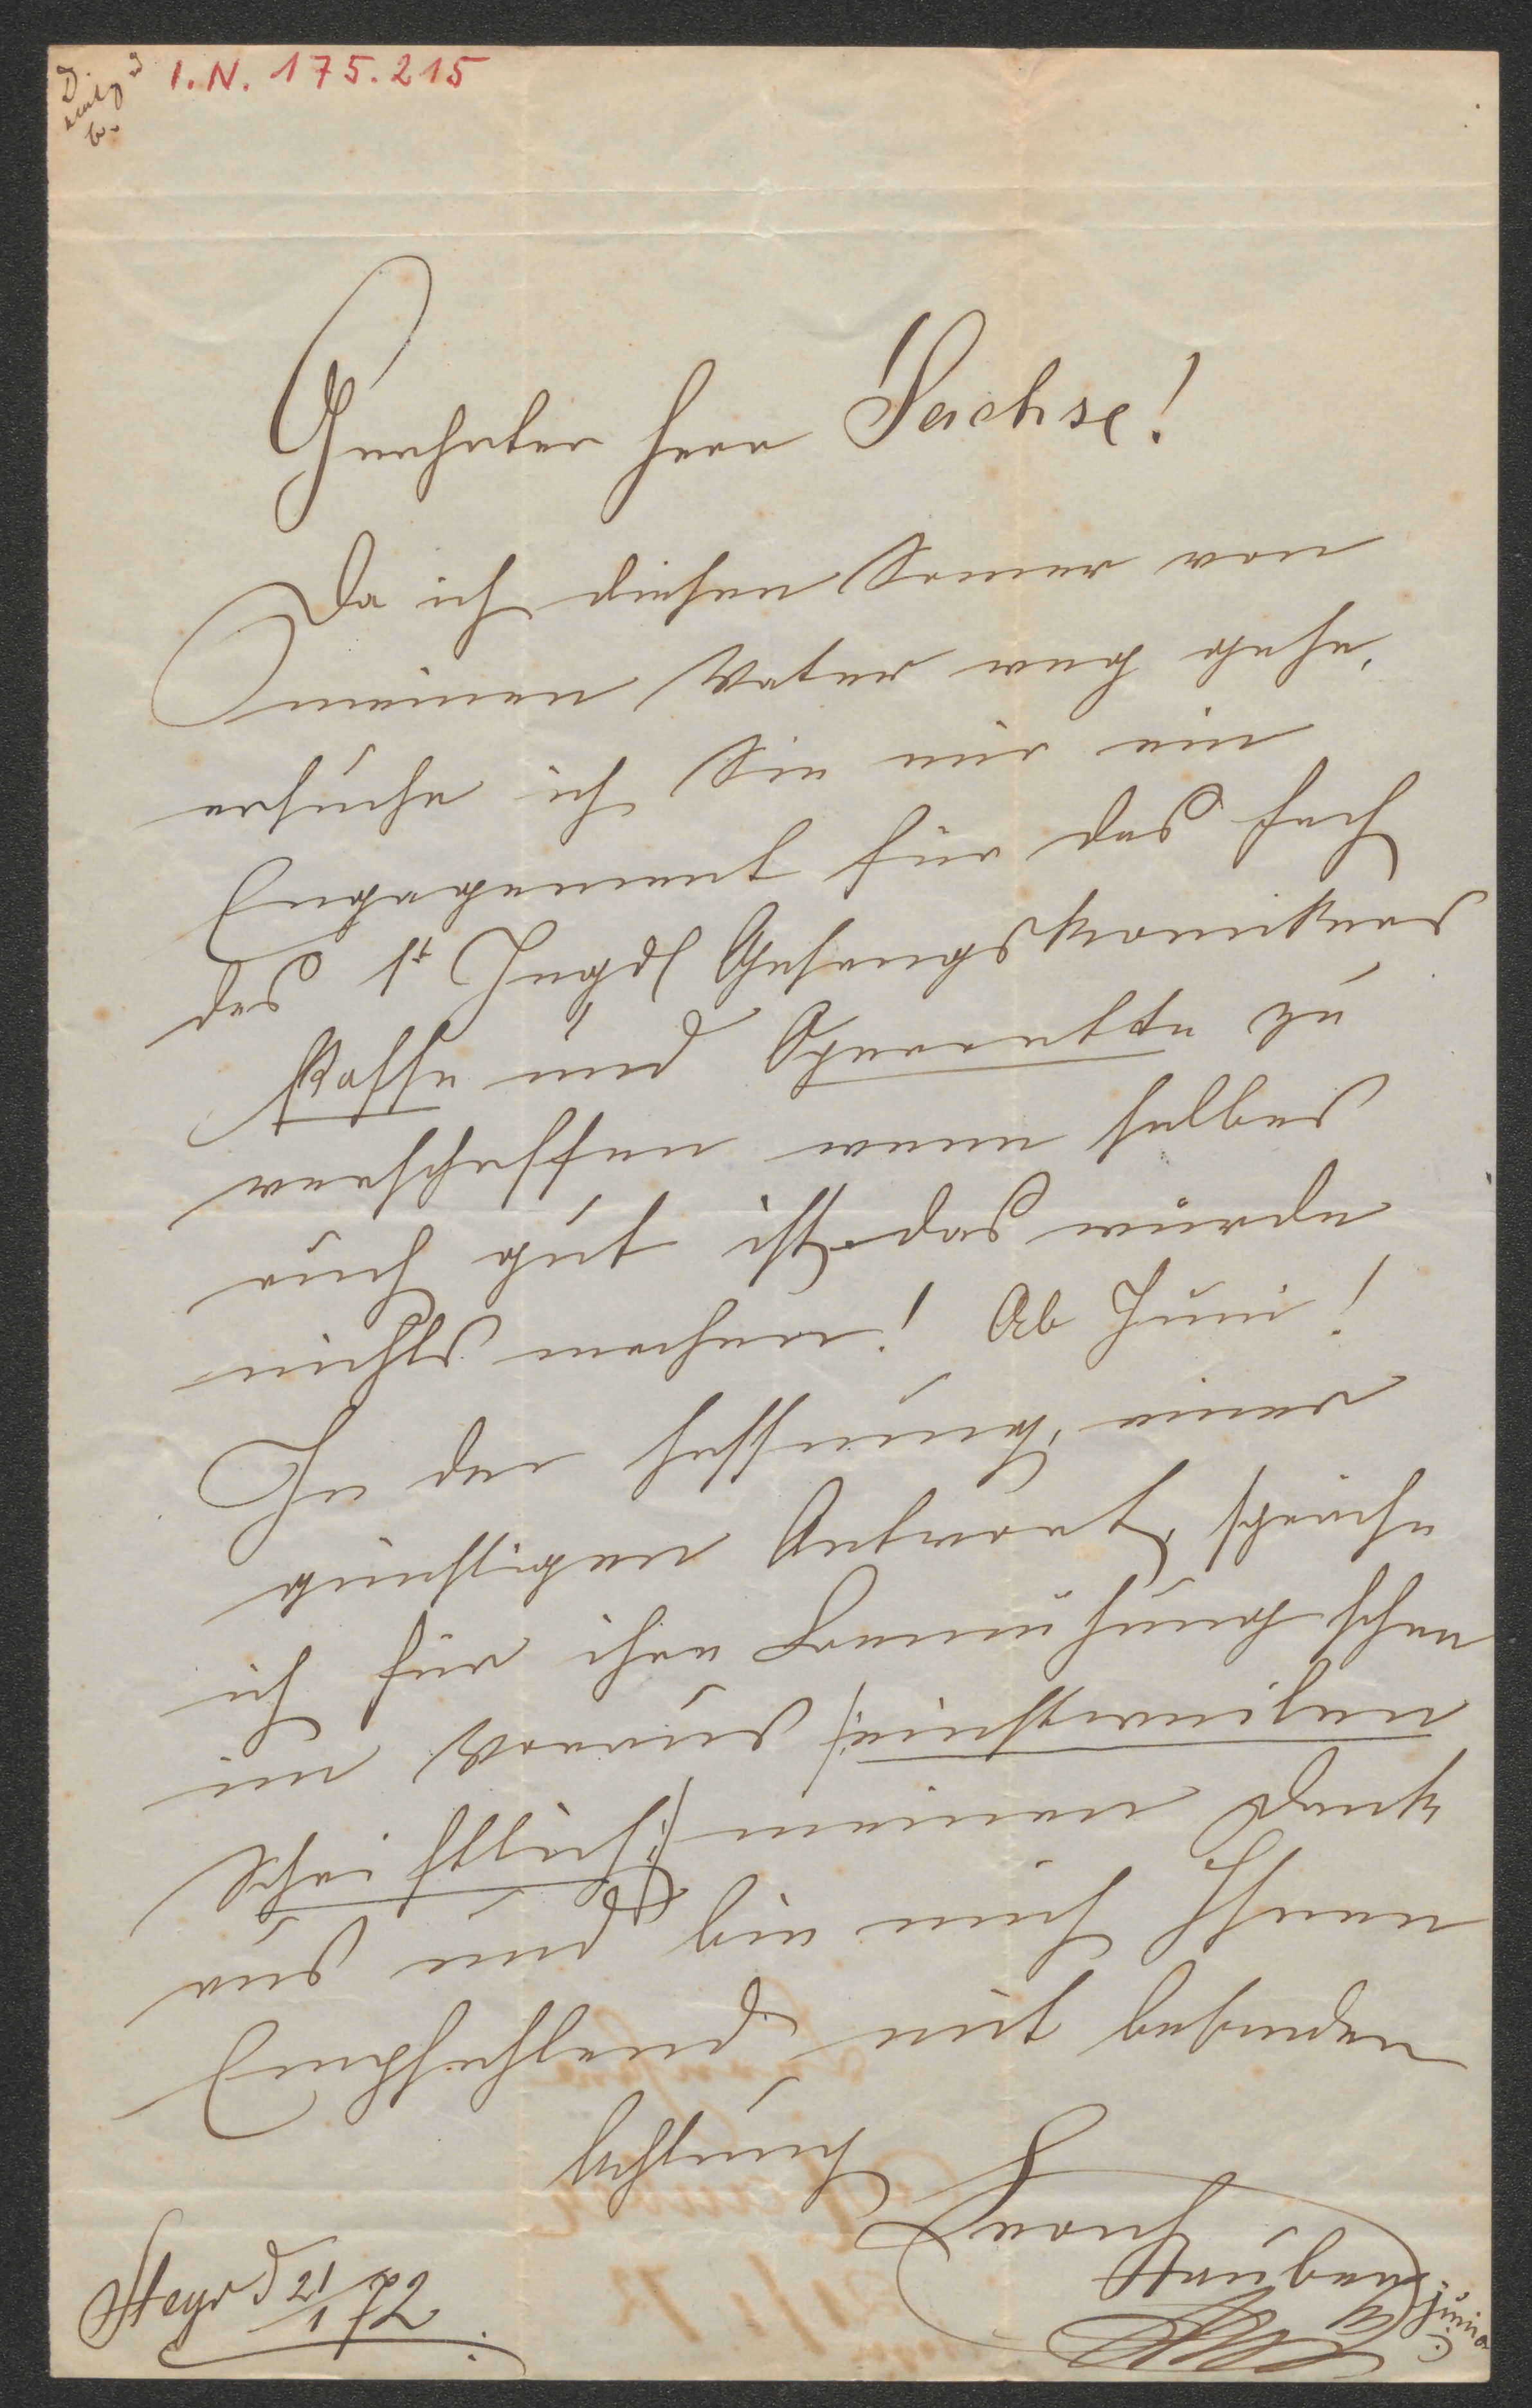 I.N. 175.215
Geehrter Herr Sachse!
Da ich diesen Somer von
meinen Vater weg gehe,
ersuche ich Sie mir ein
Engagement für das Fach
des 1t Jugdl Gesangskomikers
Posse und Operette zu
verschaffen wenn selbes
auch gut ist das würde
nichts machen! Ab Juni!
In der Hoffnung, einer
günstigen Antwort, spreche
ich für ihre Bemühung schon
im Voraus /:einstweilen
schriftlich:/ meinen Dank
aus und bin mich Ihnen
Empfehlend mit besonder
Achtung
Stauber
junior
Steyr d 21/1 72